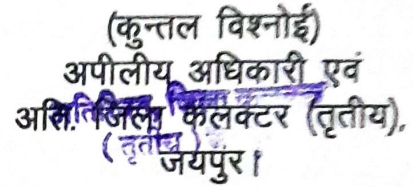 (कुन्तल विश्नोई)
अपीलीय अधिकारी एवं
अति. जिला कलक्टर (तृतीय),
(तृतीय)
जयपुर।